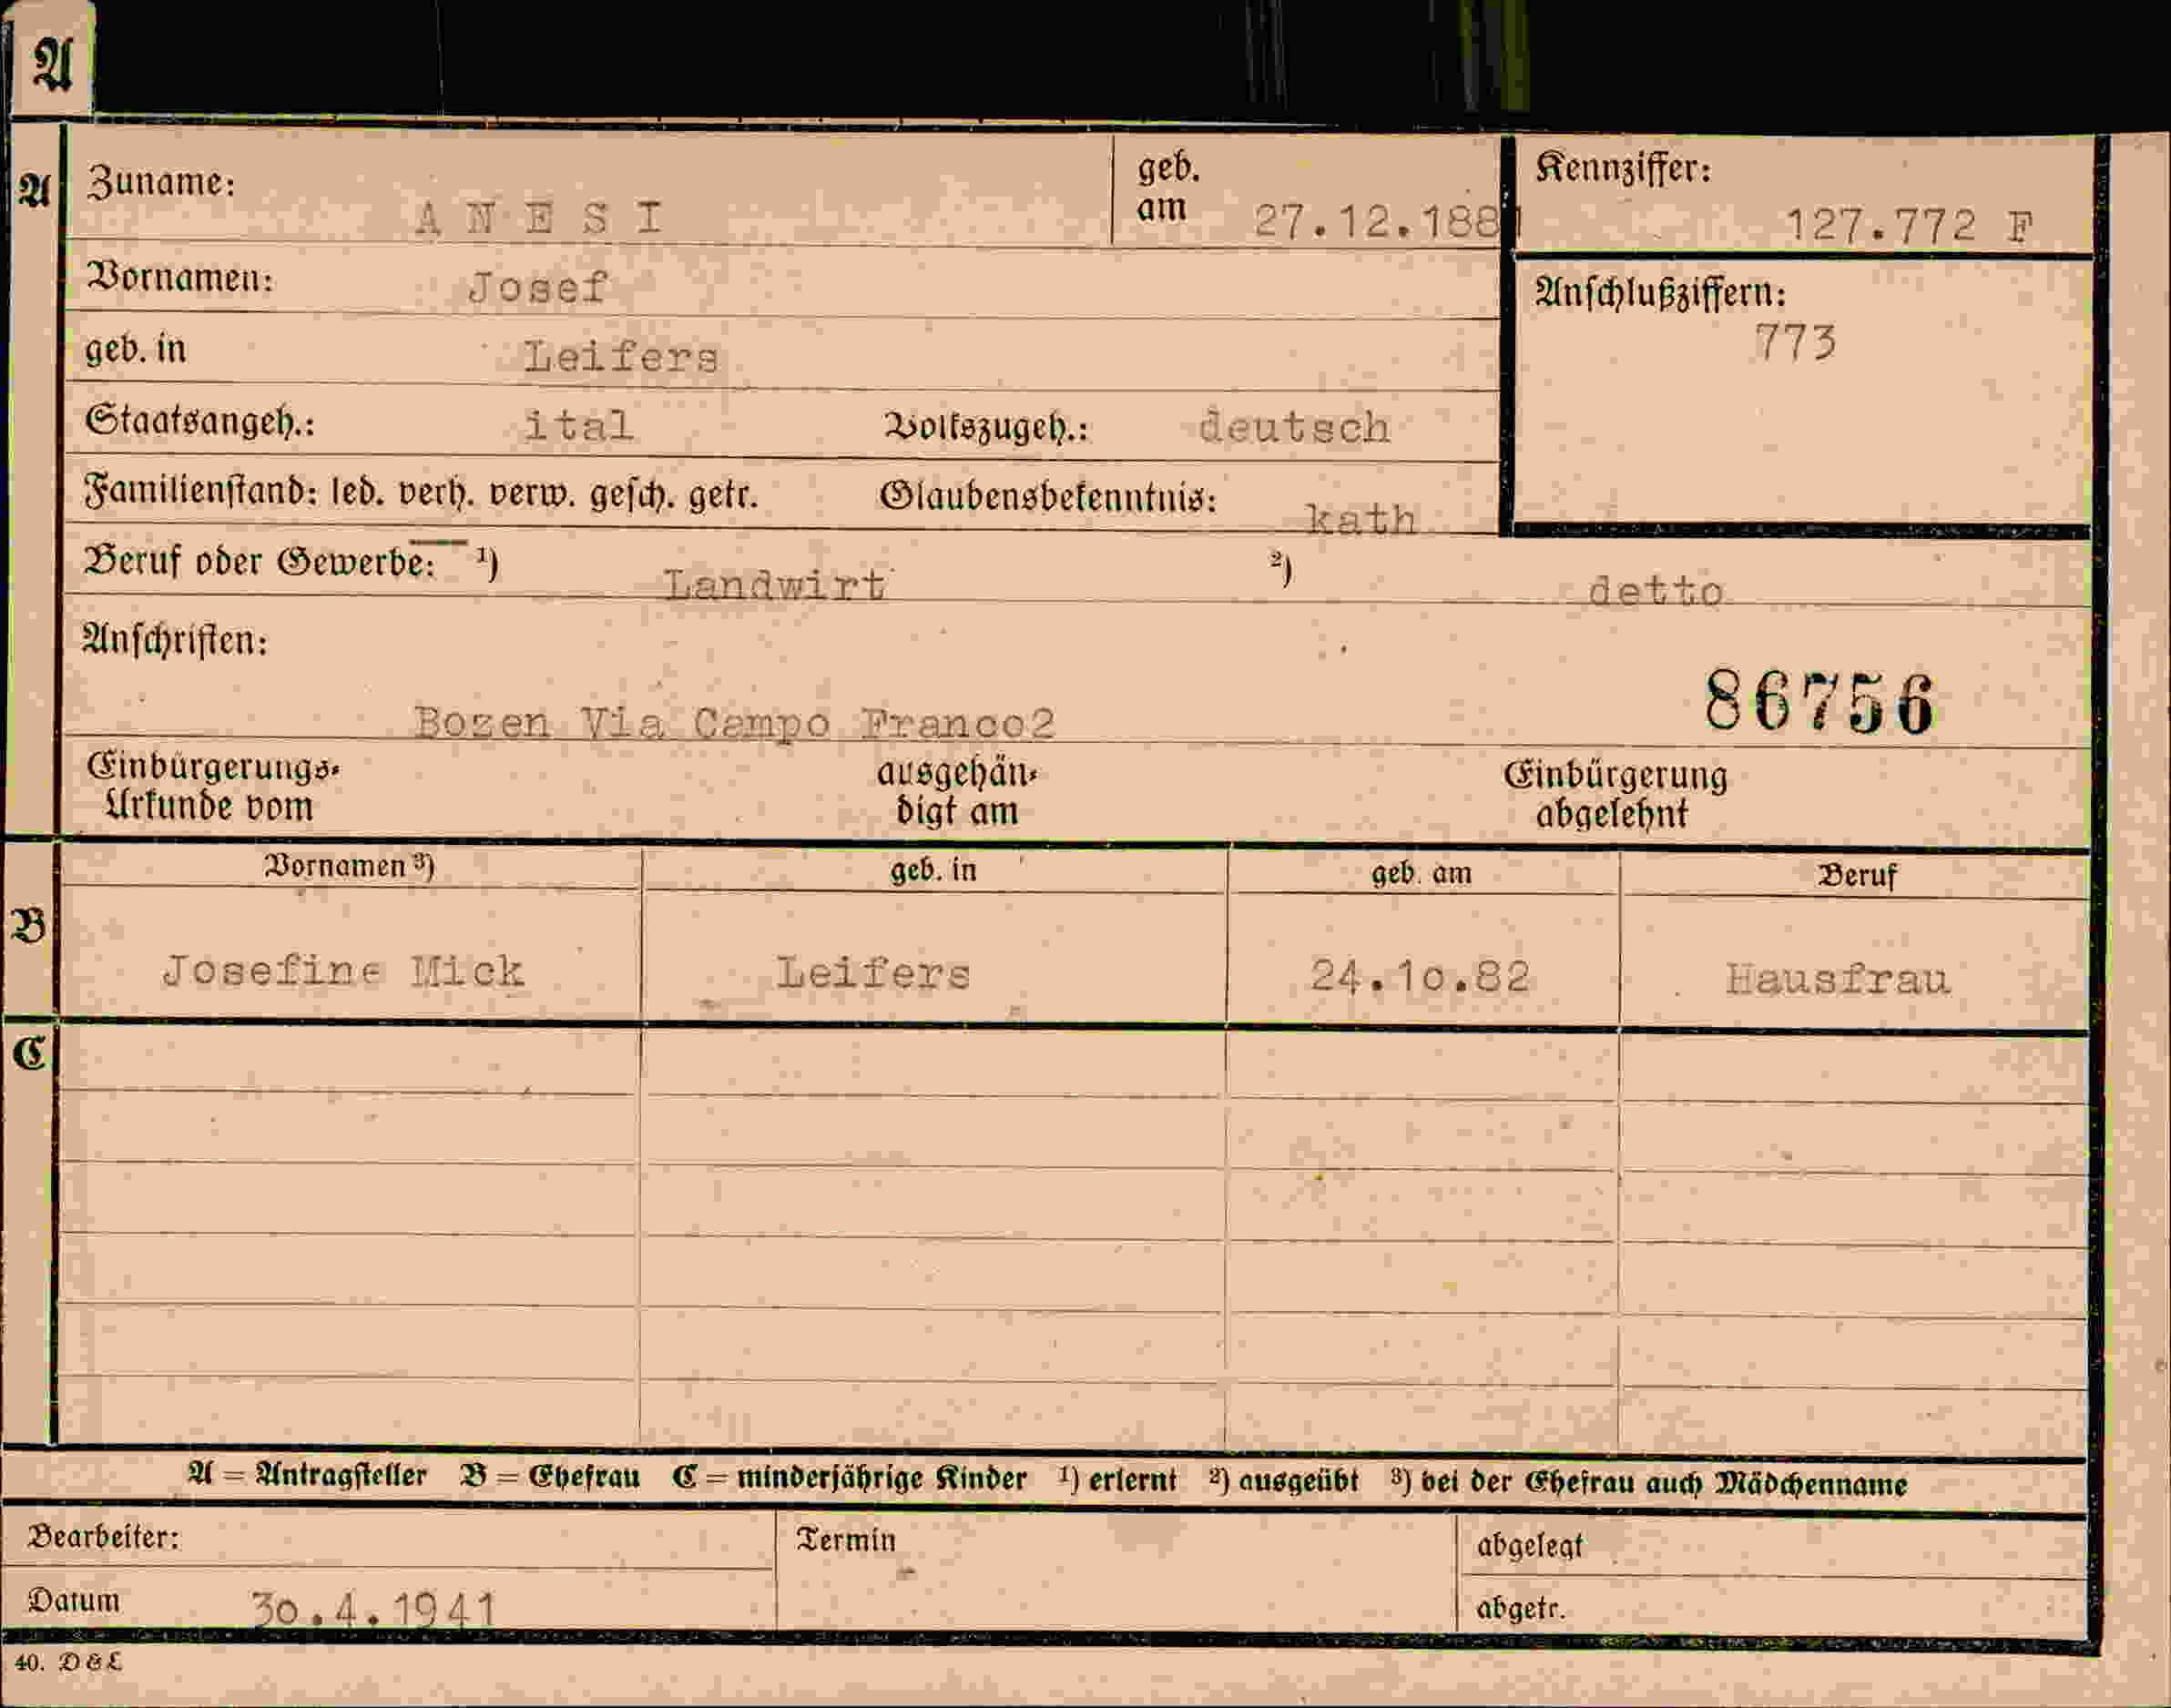 A
A Zuname: A N E S I geb. am 27.12.1881 Kennziffer: 127.772 F
Vornamen: Josef Anschlußziffern:
773
geb. in Leifers
Staatsangeh.: ital Volkszugeh.: deutsch
Familienstand: led. verh. verw. gesch. getr. Glaubensbekenntnis: kath
Beruf oder Gewerbe: ¹) Landwirt ²) detto
Anschriften:
86756
Bozen Via Campo Franco2
Einbürgerungs- ausgehän- Einbürgerung
Urkunde vom digt am abgelehnt
Vornamen ³) geb. in geb. am Beruf
B
Josefine Mick Leifers 24.10.82 Hausfrau
C
A = Antragsteller B = Ehefrau C = minderjährige Kinder ¹) erlernt ²) ausgeübt ³) bei der Ehefrau auch Mädchenname
Bearbeiter: Termin abgelegt
Datum 30.4.1941 abgetr.
40. D & L